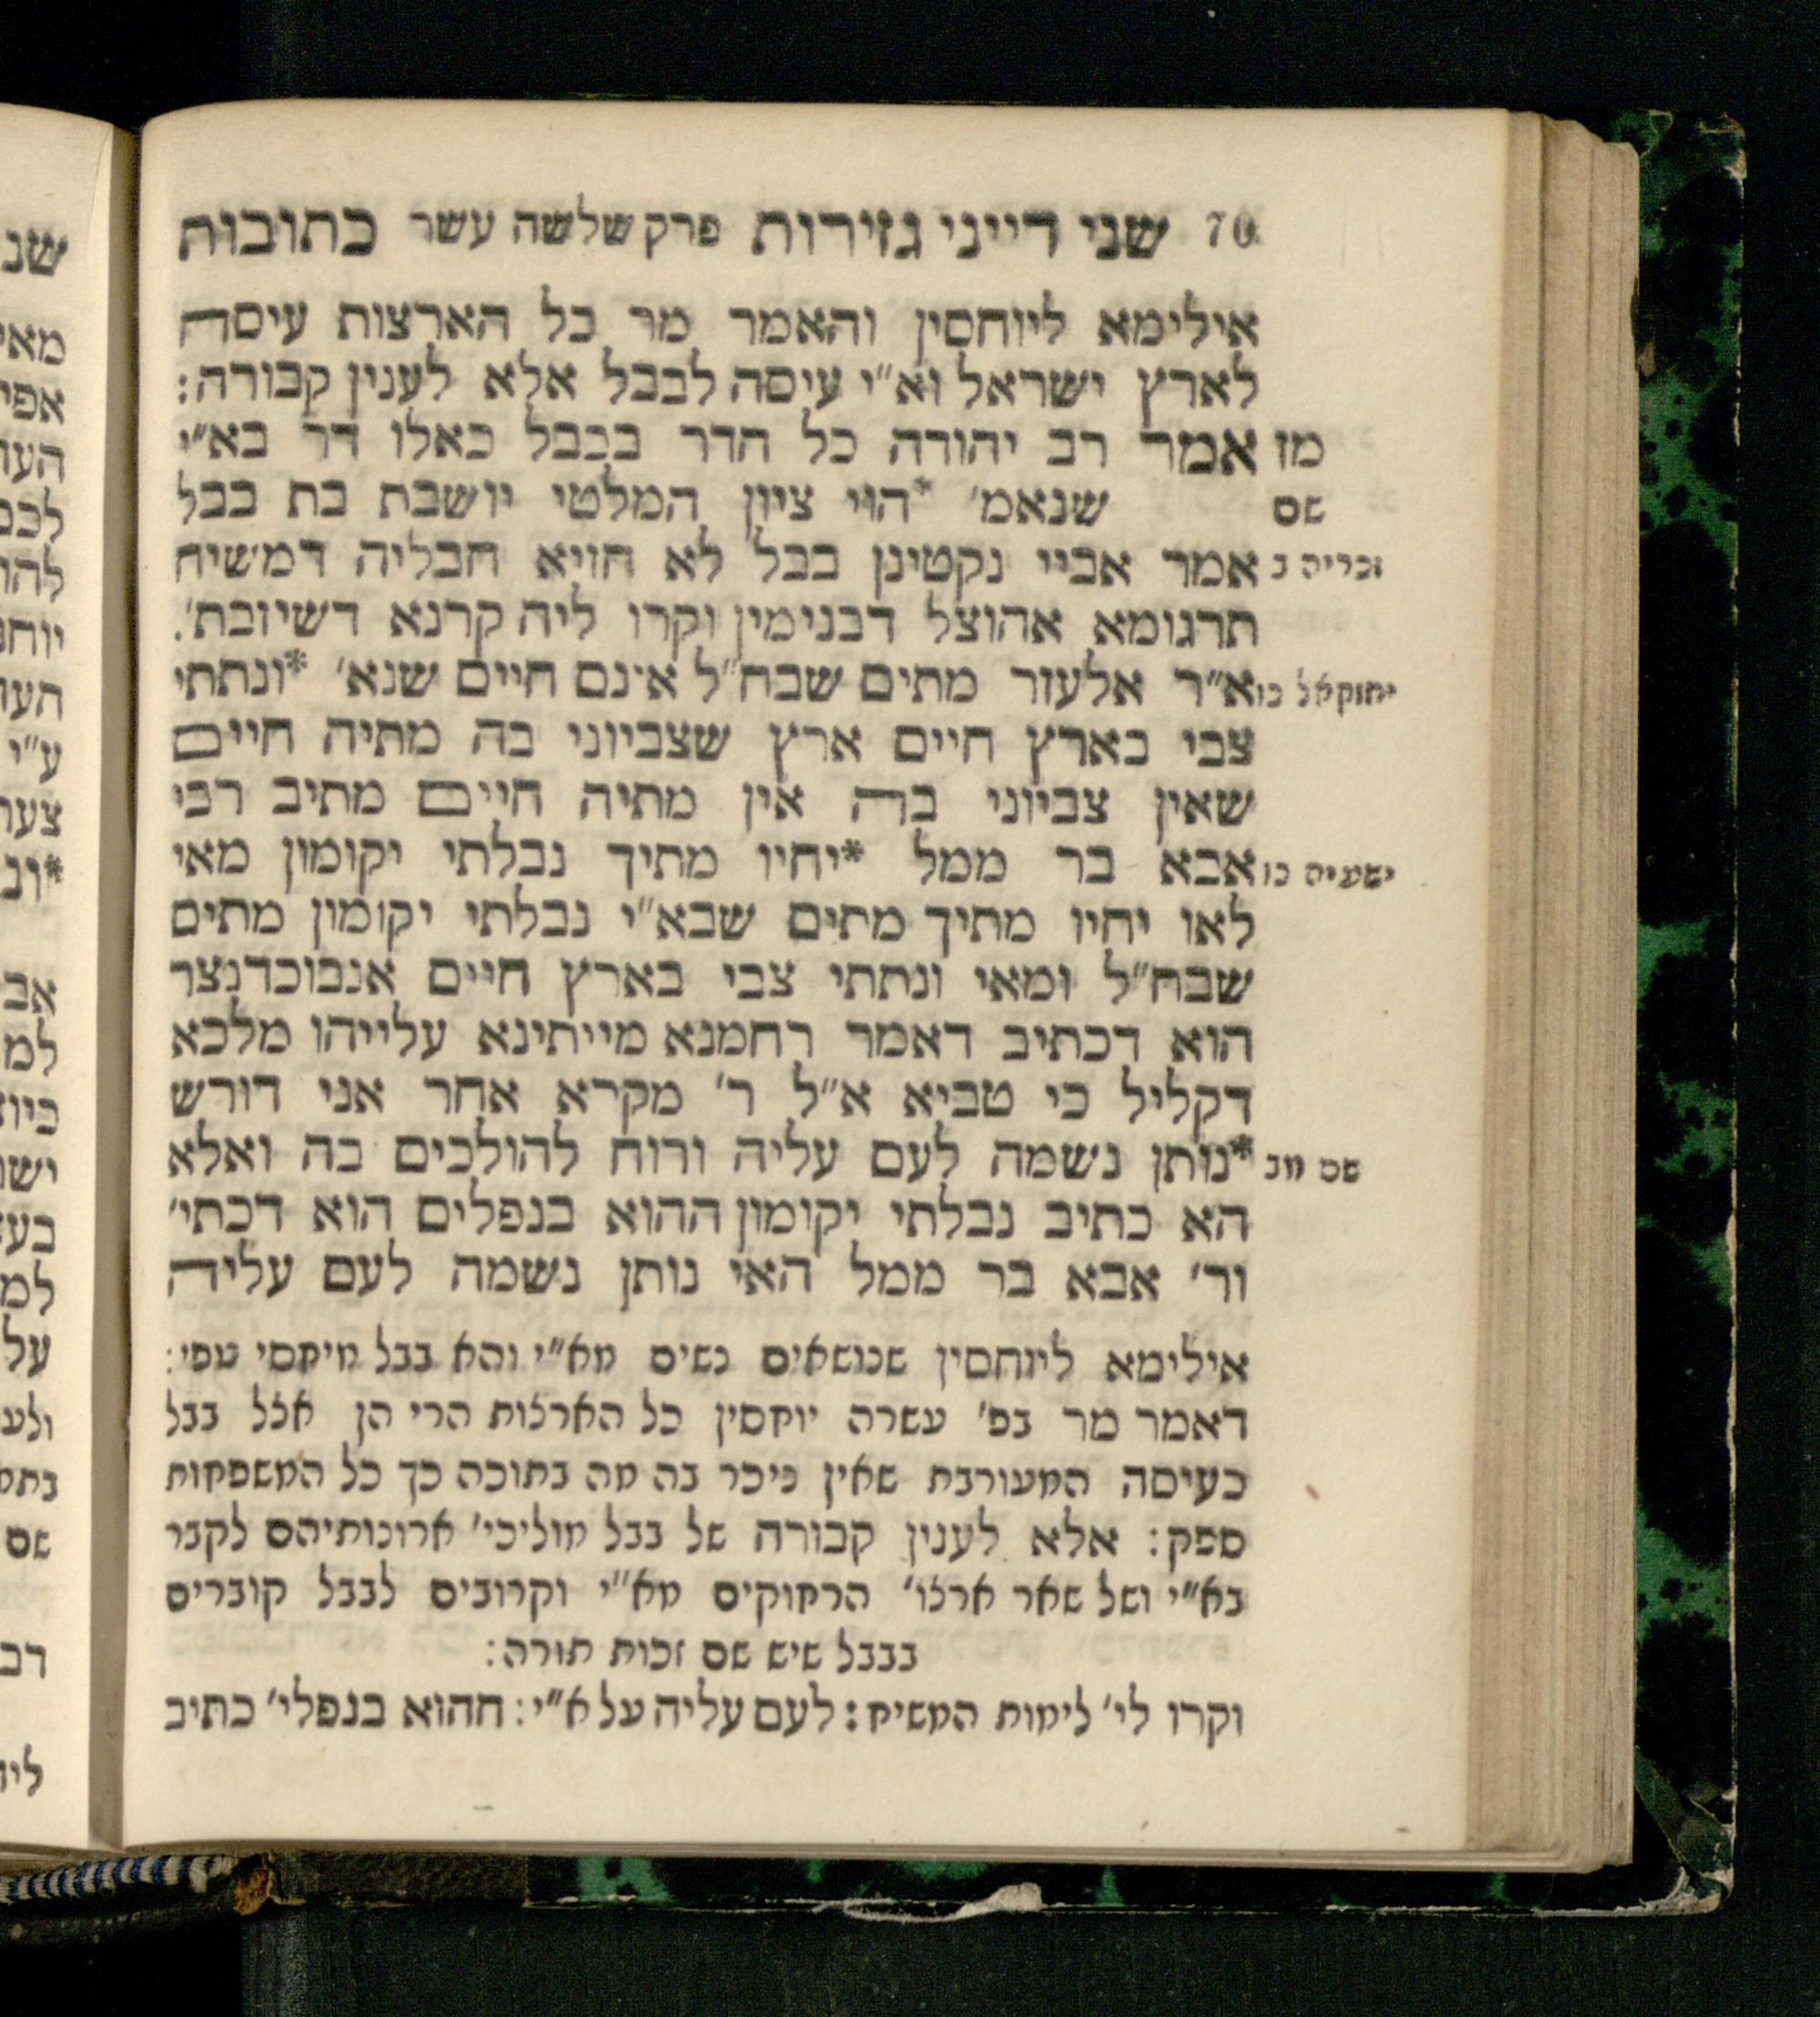 70 שני דייני גזירות פרק שלשה עשר כתובות
אילימא ליוחסין והאמר מר כל הארצות עיסה
לארץ ישראל וא״י עיסה לבבל אלא לענין קבורה:
מז אמר רב יהודה כל הדר בבבל כאלו דר בא״י
שם שנאמ׳ *הוי ציון המלטי יושבת בת בבל
זכריה ב אמר אביי נקטינן בבל לא חזיא חבליה דמשיח
תרגומא אהוצל דבנימין וקרו ליה קרנא דשיזבת׳.
יחזקאל כו א״ר אלעזר מתים שבח״ל אינם חיים שנא׳ *ונתתי
צבי בארץ חיים ארץ שצביוני בה מתיה חיים
שאין צביוני בה אין מתיה חיים מתיב רבי
ישעיה כו אבא בר ממל *יחיו מתיך נבלתי יקומון מאי
לאו יחיו מתיך מתים שבא״י נבלתי יקומון מתים
שבח״ל ומאי ונתתי צבי בארץ חיים אנבוכדנצר
הוא דכתיב דאמר רחמנא מייתינא עלייהו מלכא
דקליל כי טביא א״ל ר׳ מקרא אחר אני דורש
שם מב *נותן נשמה לעם עליה ורוח להולכים בה ואלא
הא כתיב נבלתי יקומון ההוא בנפלים הוא דכתי׳
ור׳ אבא בר ממל האי נותן נשמה לעם עליה
אילימא ליוחסין שנושאים נשים מא״י והא בבל מיחסי טפי:
דאמר מר בפ׳ עשרה יוחסין כל הארצות הרי הן אצל בבל
כעיסה המעורבת שאין ניכר בה מה בתוכה כך כל המשפחות
ספק: אלא לענין קבורה של בבל מוליכי׳ ארונותיהם לקבר
בא״י ושל שאר ארצו׳ הרחוקים מא״י וקרובים לבבל קוברים
בבבל שיש שם זכות תורה:
וקרו לי׳ לימות המשיח: לעם עליה על א״י: ההוא בנפלי׳ כתיב